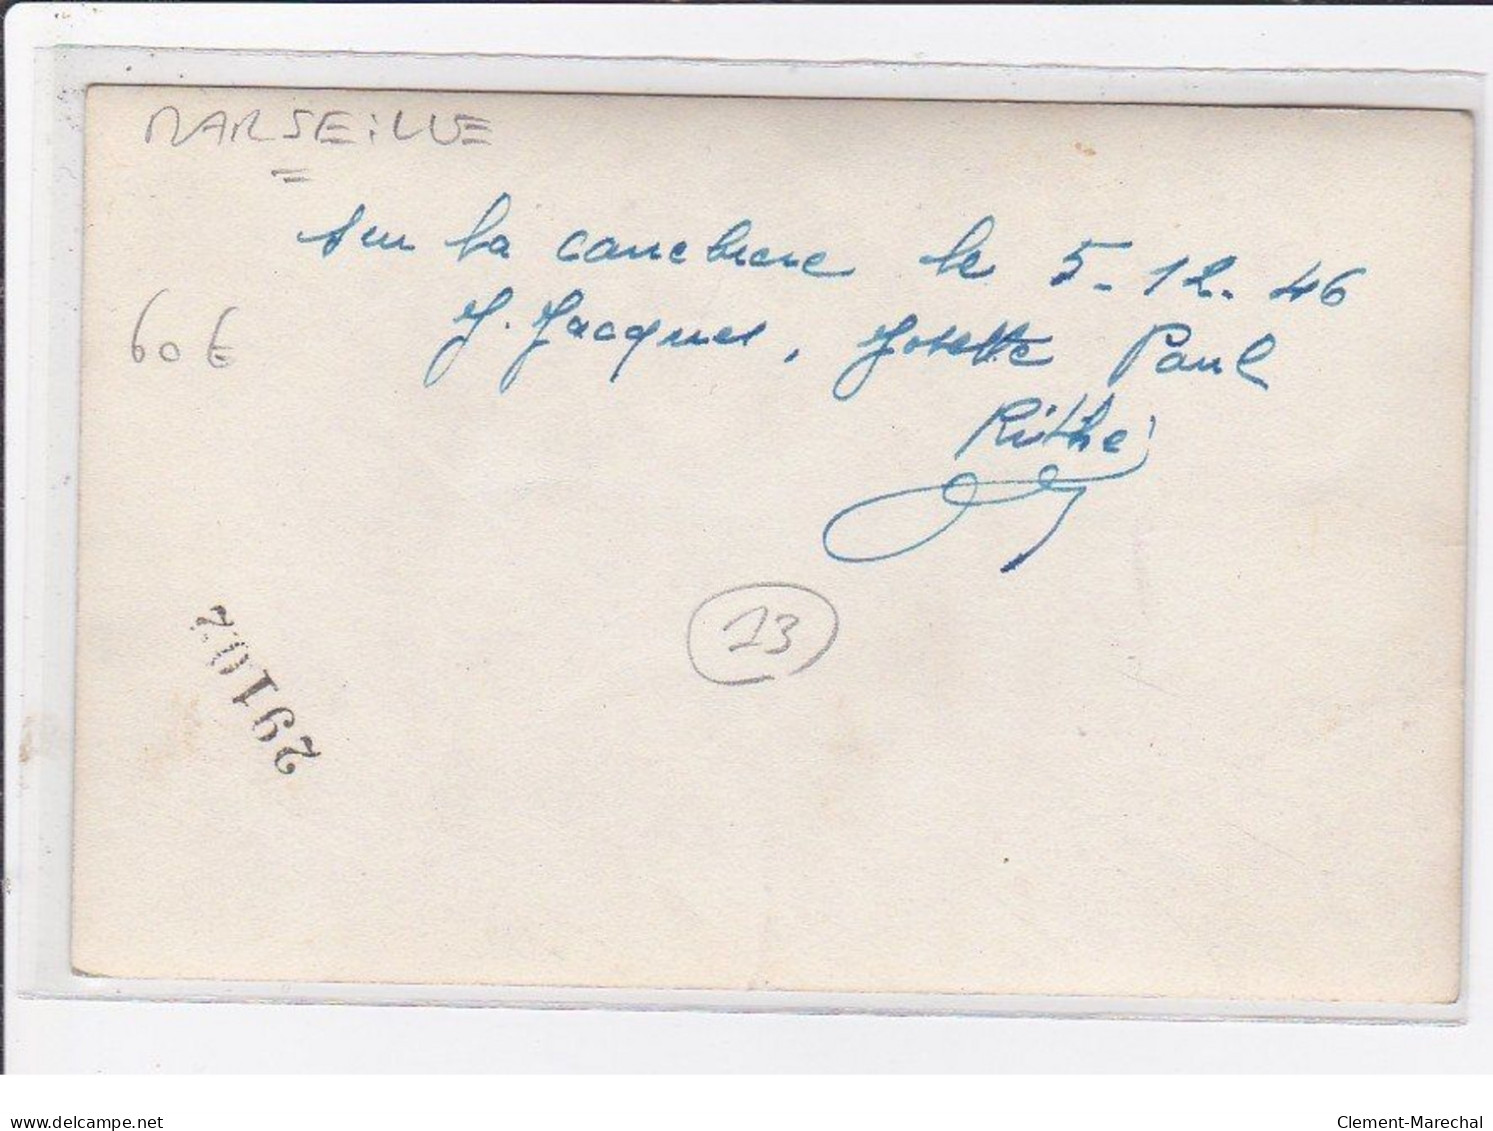 MARSEILLE
sur la canebiere le 5-12-46
60€
J. Jacques, Josette Paul
Rüthé
13
29102
delcampe.net
Clement-Marechal